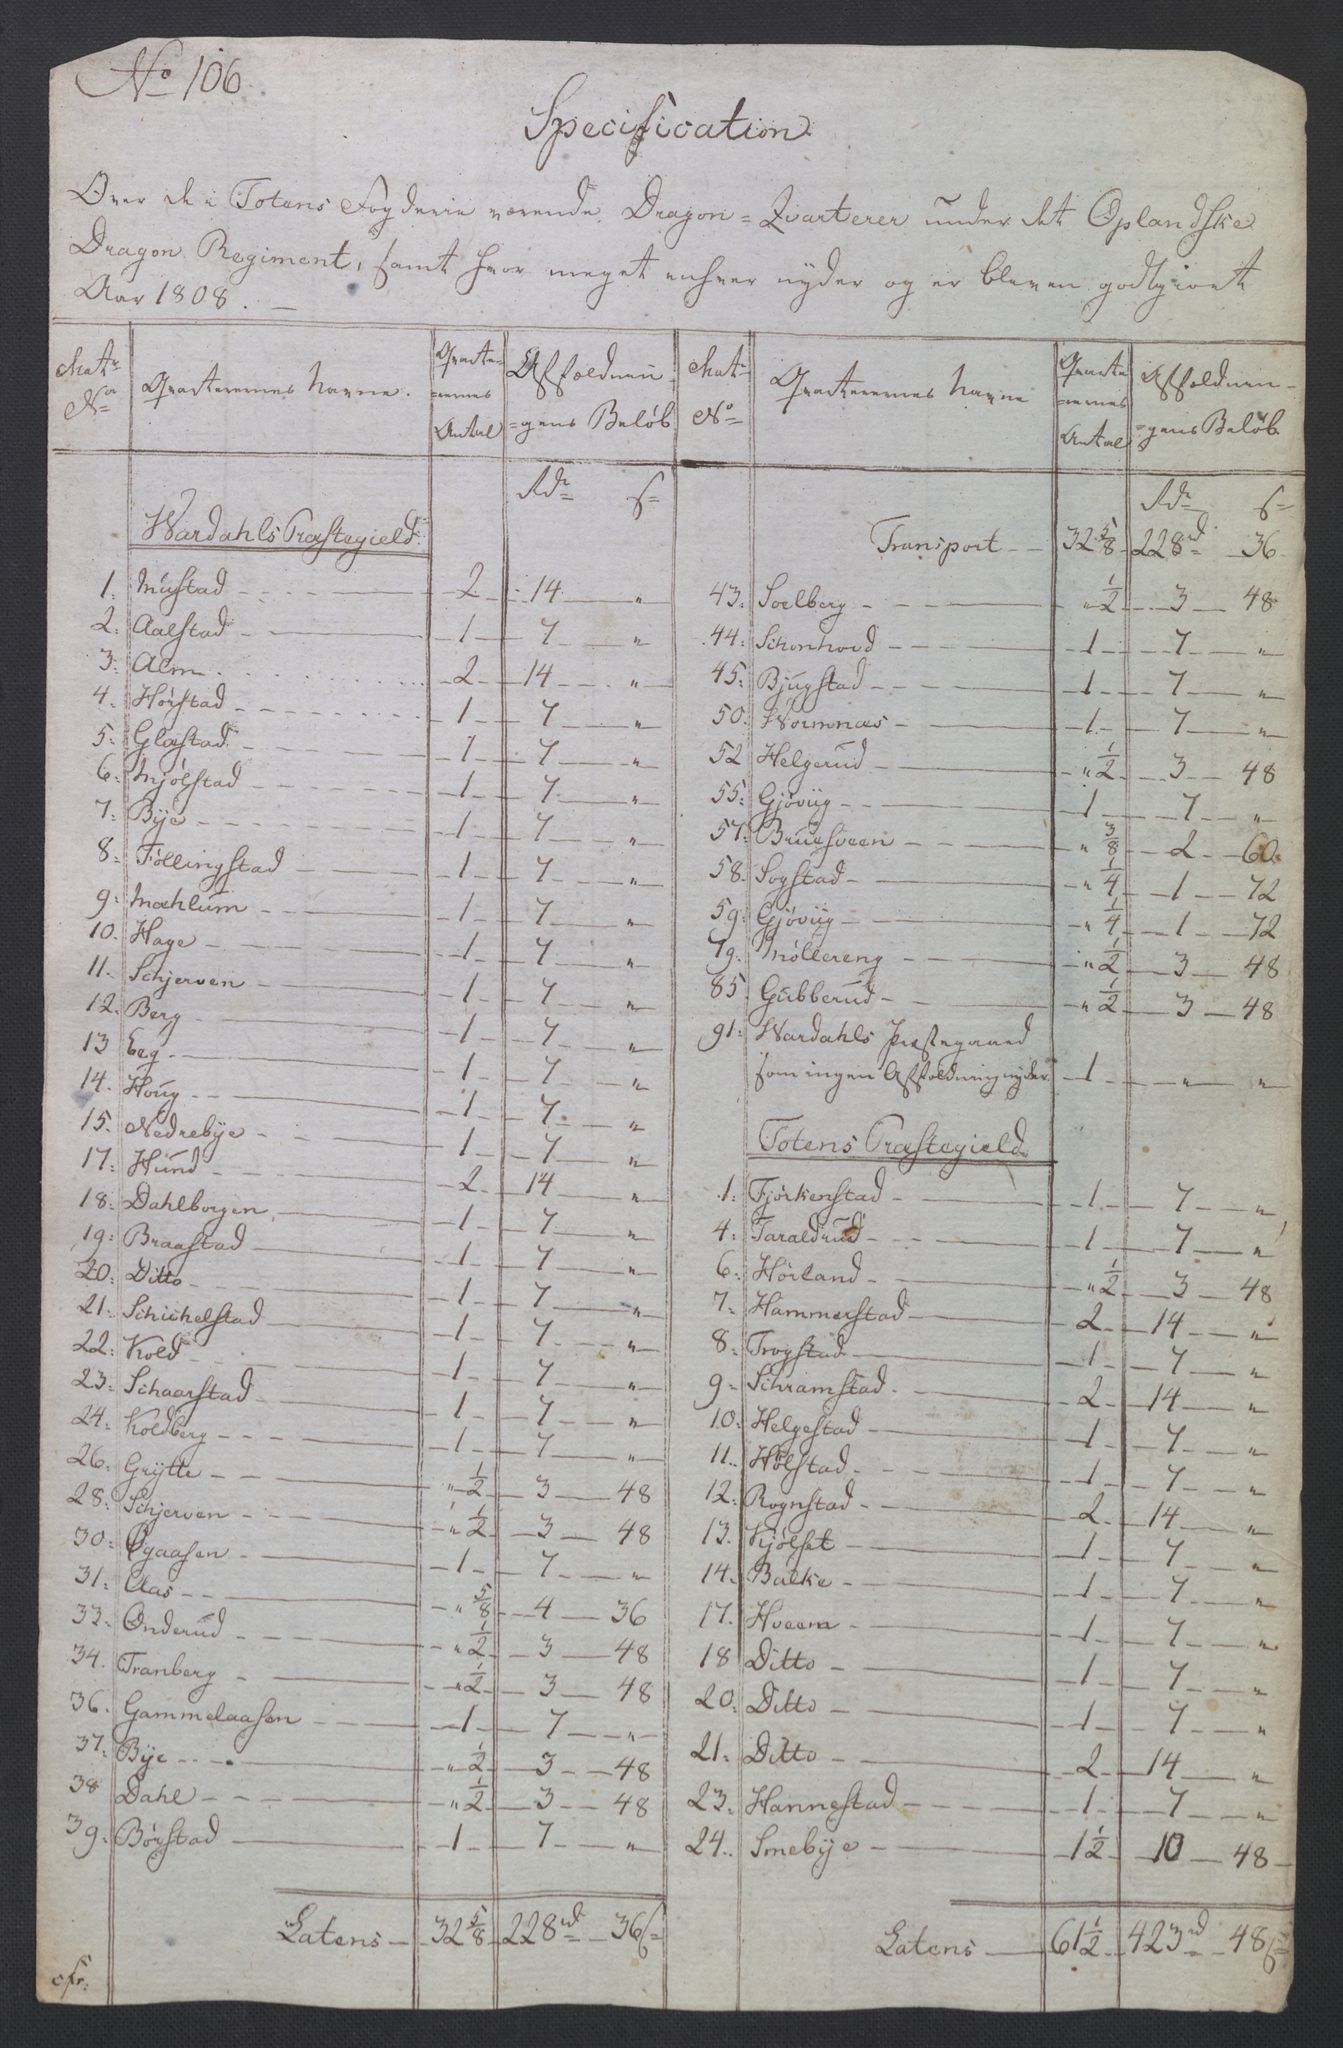 No 106.
Specification
Over de i Totens Fogderie værende Dragon=Qvarterer under det Oplandske
Dragon Regiment, samt hvor meget enhver nyder og er bleven godtgiort
Aar 1808. —
Matr No | Qvarterernes Navne. | Qvarte=rernes Antal | Affældnin=gens Beløb | Matr No | Qvarterernes Navne | Qvarte=rernes Antal | Affældnin=gens Beløb
Rdr s
Wardahls Præstegield
1. Mustad 2 14 "
2. Aalstad 1 7 "
3. Alm 2 14 "
4. Hørstad 1 7 "
5. Glæstad 1 7 "
6. Mjølstad 1 7 "
7. Bÿe 1 7 "
8. Føllingstad 1 7 "
9. Mæhlum 1 7 "
10. Hage 1 7 "
11. Schjerven 1 7 "
12. Berg 1 7 "
13 Eeg 1 7 "
14. Houg 1 7 "
15. Nedrebÿe 1 7 "
17. Hund 2 14 "
18. Dahlborgen 1 7 "
19. Braastad 1 7 "
20. Ditto 1 7 "
21. Schichelstad 1 7 "
22. Kold 1 7 "
23. Schaarstad 1 7 "
24. Koldberg 1 7 "
26. Grÿtte " 1/2 3 48
28. Schjerven " 1/2 3 48
30. Øgaasen 1 7 "
31. Aas " 5/8 4 36
33. Onderud " 1/2 3 48
34. Tranberg " 1/2 3 48
36. Gammelaasen 1 7 "
37. Bÿe " 1/2 3 48
38 Dahl " 1/2 3 48
39. Børstad 1 7 "
Latens 32 5/8 228rd 36s
Rdr s
Transport 32 5/8 228rd 36
43. Soelberg " 1/2 3 48
44. Schonhovd 1 7 "
45. Bjugstad 1 7 "
50. Wormnæs 1 7 "
52 Helgerud " 1/2 3 48
55. Gjøviig 1 7 "
57. Bruusveen " 3/8 2 60
58. Sogstad " 1/4 1 72
59. Gjøviig " 1/4 1 72
79. Møllereng " 1/2 3 48
85 Gubberud " 1/2 3 48
91. Wardahls Præstegaard
som ingen Affældning nyder 1 " "
Totens Præstegield
1. Fjørkenstad 1 7 "
4. Taraldrud 1 7 "
6. Hørland " 1/2 3 48
7. Hammerstad 2 14 "
8. Trogstad 1 7 "
9. Schramstad 2 14 "
10. Helgestad 1 7 "
11. Hølstad 1 7 "
12. Rognstad 2 14 "
13. Kjølset 1 7 "
14. Balke 1 7 "
17. Hveem 1 7 "
18 Ditto 1 7 "
20. Ditto 1 7 "
21. Ditto 2 14 "
23. Hannestad 1 7 "
24. Smebÿe 1 1/2 10 48
Latens 61 1/2 423rd 48s